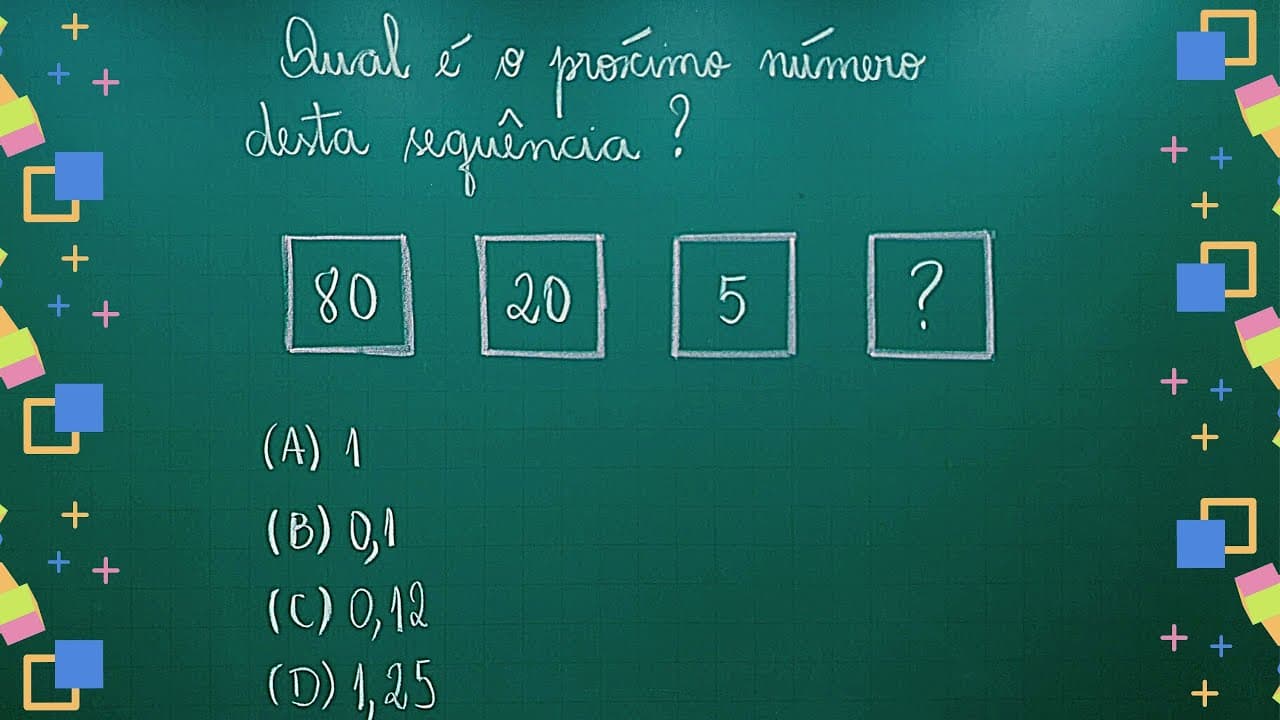 Qual é o próximo número
desta sequência ?
80 20 5 ?
(A) 1
(B) 0,1
(C) 0,12
(D) 1,25